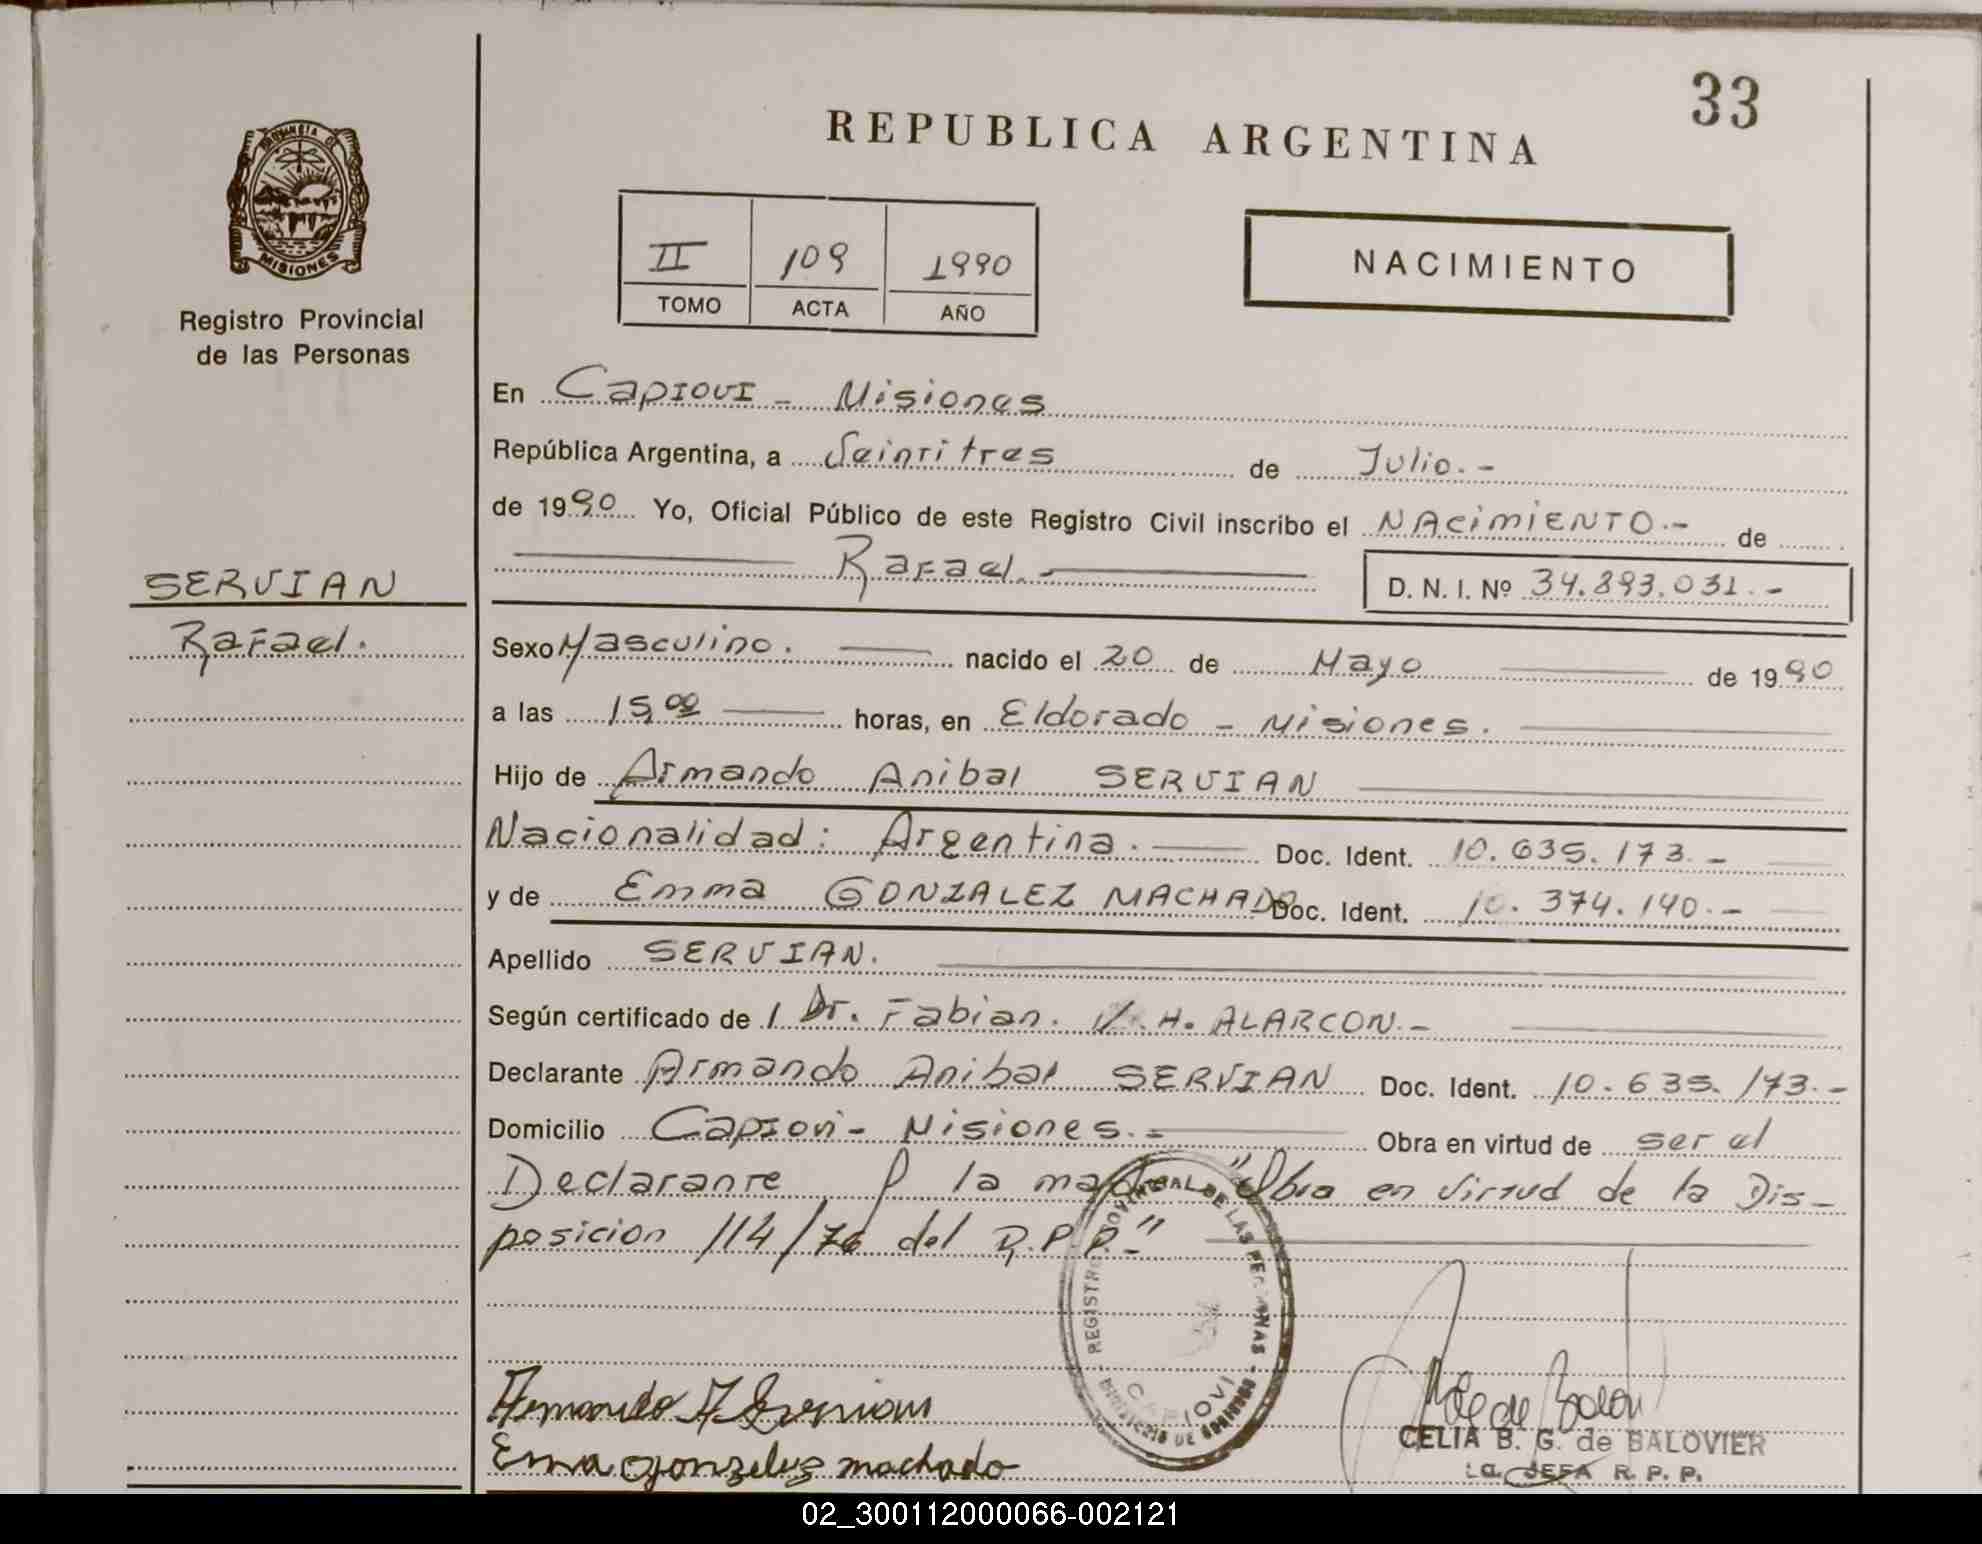 33
REPUBLICA ARGENTINA
PROVINCIA DE
MISIONES
Registro Provincial
de las Personas
II 109 1990
TOMO ACTA AÑO
NACIMIENTO
En Capiovi - Misiones
República Argentina, a Veintitres de Julio.-
de 1990 Yo, Oficial Público de este Registro Civil inscribo el NACIMIENTO.- de
Rafael.-
D. N. I. Nº 34.893.031.-
SERVIAN
Rafael.
Sexo Masculino. nacido el 20 de Mayo de 1990
a las 15,00 horas, en Eldorado - Misiones.
Hijo de Armando Anibal SERVIAN
Nacionalidad: Argentina. Doc. Ident. 10.635.173.-
y de Emma GONZALEZ MACHADO Doc. Ident. 10.374.140.-
Apellido SERVIAN.
Según certificado de / Dr. Fabian. H. ALARCON.-
Declarante Armando Anibal SERVIAN Doc. Ident. 10.635.173.-
Domicilio Capiovi - Misiones.- Obra en virtud de ser el
Declarante la "Obra en virtud de la Dis-
posicion 114/76 del R.P.P.-"
REGISTRO PROVINCIAL DE LAS PERSONAS - MINISTERIO DE GOBIERNO -
CAPIOVI
Armando A Servian
Ema gonzelez machado
CELIA B. G. de BALOVIER
JEFA R. P. P.
02_300112000066-002121